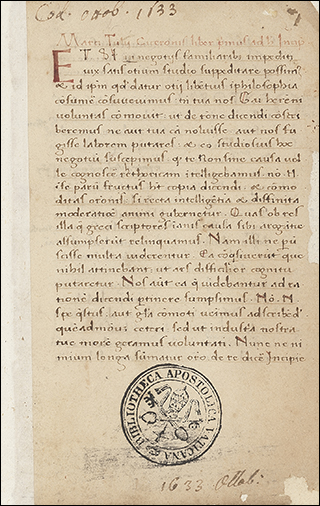 Cod. ottob. 1633
Marci Tulii Ciceronis liber primus ad He
ETSI in negotiis familiarib; impediti
uix satis otium studio suppeditare possim
& id ipm qd datur otii libetius i philosophia
cōsumē cōsueuimus tn tua nos Gai herenni
uoluntas cōmouit ut de rōne dicendi cōscri
beremus ne aut tua cā noluisse aut nos fu
gisse laborem putares & eo studiosius hoc
negotiū suscepimus q te non sine causa uel
le cognosce rethoricam intelligebamus nō
ise parū fructus hīt copia dicendi & cōmo
ditas orōnis si recta intelligētia & diffinita
moderatiōe animi gubernetur Quas ob res
illa q greci scriptores ianis causa sibi arogātie
assumpserūt relinquamus Nam illi ne parū
scisse multa uiderentur ea cōqsiuerūt que
nihil attinebant ut ars difficilior cognitu
putaretur Nos aūt ea q uidebantur ad ra
tionē dicendi ptinere sumpsimus Nō
spe qstus aut gla cōmoti uenimus ad scribēd
quē admodū ceteri sed ut industria nostra
tue morē geramus uoluntati Nunc ne ni
mium longa sumatur orō de re dicē Incipie
BIBLIOTHECA APOSTOLICA VATICANA
1633 Ottob: